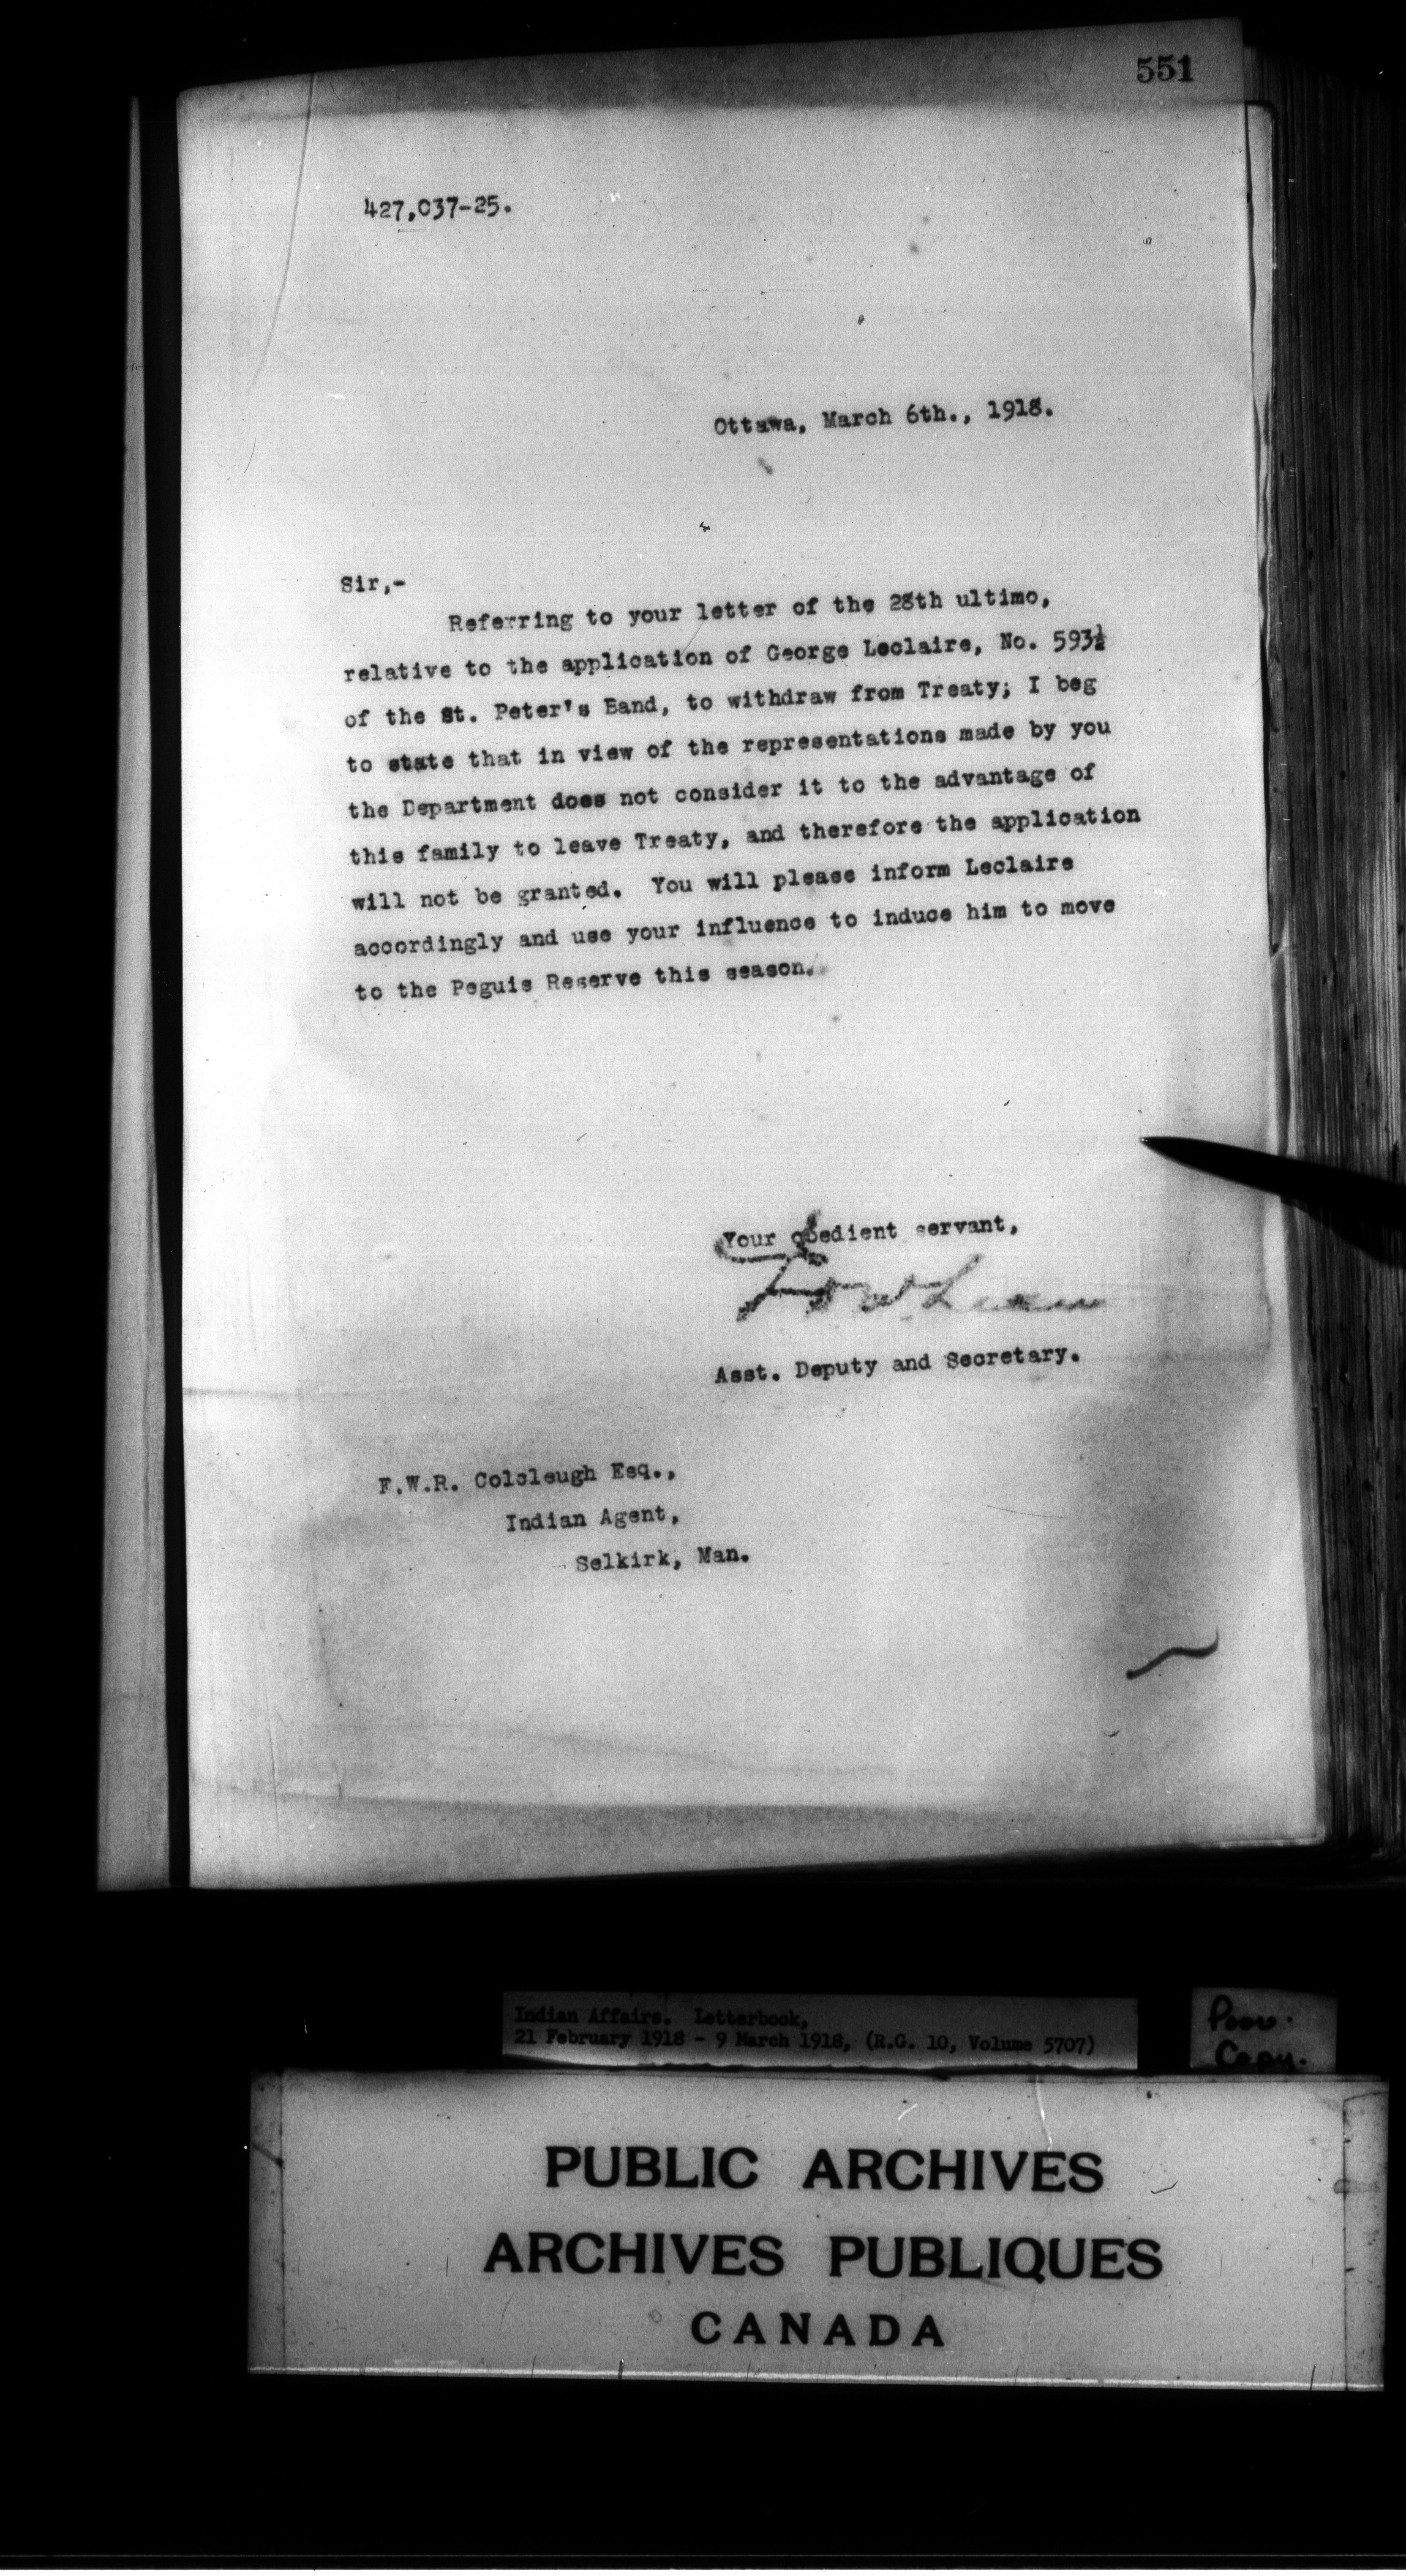 551
427,037-25.
Ottawa, March 6th., 1918.
Sir,-
Referring to your letter of the 28th ultimo,
relative to the application of George Leclaire, No. 593½
of the St. Peter's Band, to withdraw from Treaty; I beg
to state that in view of the representations made by you
the Department does not consider it to the advantage of
this family to leave Treaty, and therefore the application
will not be granted. You will please inform Leclaire
accordingly and use your influence to induce him to move
to the Peguis Reserve this season.
Your obedient servant,
Asst. Deputy and Secretary.
F.W.R. Colcleugh Esq.,
Indian Agent,
Selkirk, Man.
Indian Affairs. Letterbook,
21 February 1918 - 9 March 1918, (R.G. 10, Volume 5707)
Poor
Copy.
PUBLIC ARCHIVES
ARCHIVES PUBLIQUES
CANADA